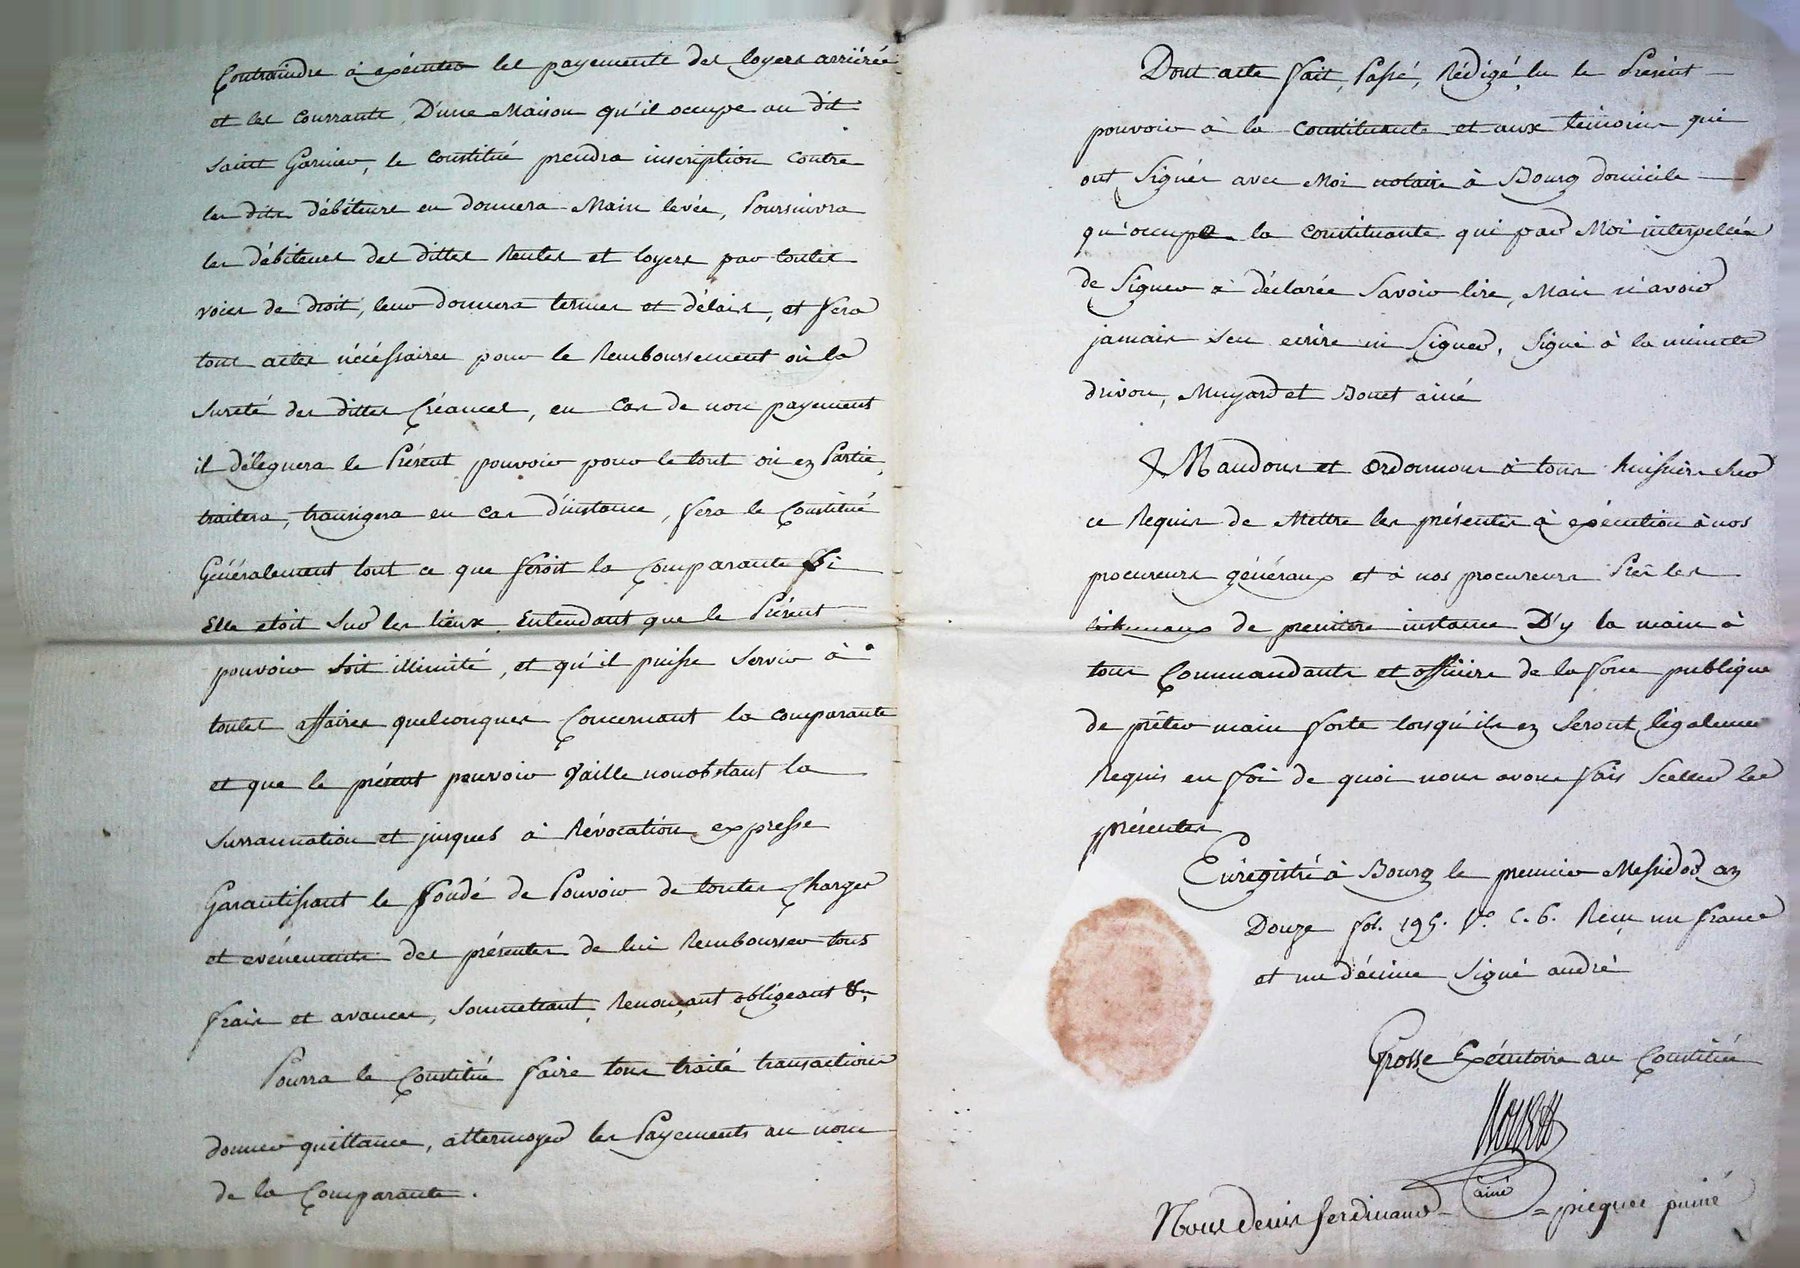 Contraindre à exécuter les payements des loyers arriérés
et les courrants, D'une Maison qu'il occupe au dit
saint Garnier, le constitué prendra inscription contre
les dits débiteurs en donnera Main levée, Poursuivra
les débiteurs des dittes Rentes et loyers par toutes
voies de droit, leur donnera termes et délais, et fera
tous actes nécéssaires pour le Remboursement où la
sureté des dittes Créances, en cas de non payement
il déléguera le Présent pouvoir pour le tout où en Partie,
traitera, transigera en cas d'instance, fera le Constitué
Généralement tout ce que feroit la Comparante si
Elle etoit sur les lieux Entendant que le Présent
pouvoir soit illimité, et qu'il puisse servir à
toutes affaires quelconques Concernant la comparante
et que le présent pouvoir vaille nonobstant la
surrannation et jusques à Révocation expresse
Garantissant le fondé de Pouvoir de toutes Charges
et evénements des présentes de lui Rembourser tous
frais et avances, soumettant, Renonçant obligeant &a
Pourra le Constitué faire tous traité transactions
donner quittance, attermoyer les Payements au nom
de la Comparante.
Dont acte fait, Passé, Rédigé, lu le Présent
pouvoir à la constituante et aux témoins qui
ont signés avec Moi notaire à Bourg domicile
qu'occupe la constituante qui par Moi interpellée
de signer a déclarée savoir lire, Mais n'avoir
jamais seu ecrire ni signer, signé à la minute
drivon, Muyard et Bouet ainé
Mandons et ordonnons à tous huissiers sur
ce Requis de Mettre les présentes à exécution à nos
procureurs généraux et à nos procureurs Près les
tribunaux de première instance D'y la main à
tous Commandants et officiers de la force publique
de prêter main forte lorsqu'ils en seront légalement
Requis en foi de quoi nous avons fais sceller les
présentes
Enrégistré à Bourg le premier Messidor an
Douze fol. 195. Vo. C. 6. Reçu un franc
et un décime signé andré
Grosse Exécutoire au Constitué
ainé
Nous denis ferdinand picquet puiné